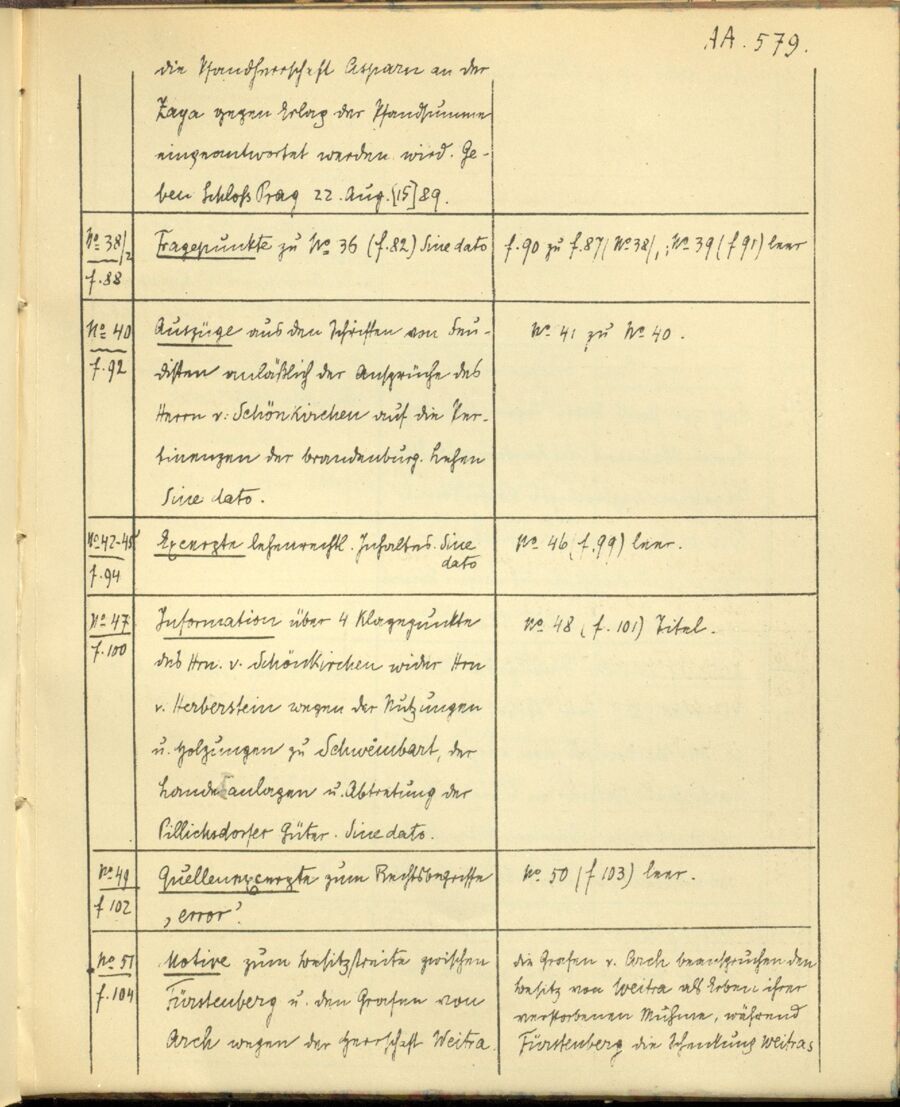 AA. 579.
die Pfandherrschaft Asparn an der
Zaya gegen Erlag der Pfandsumme
eingeantwortet werden wird. Ge-
ben Schloß Prag 22. Aug. [15]89.
No 38/2
f. 88
Fragepunkte zu No 36 (f. 82) Sine dato
f. 90 zu f. 87 (No 38/, ; No 39 (f 91) leer
No 40
f. 92
Auszüge aus den Schriften von Feu-
disten anläßlich der Ansprüche des
Herrn v: Schönkirchen auf die Per-
tinenzen der brandenburg. Lehen
Sine dato.
No 41 zu No 40.
No 42-45
f. 94
Excerpte lehenrechtl. Inhaltes. Sine
dato
No 46 (f. 99) leer.
No 47
f. 100
Information über 4 Klagepunkte
des Hrn. v. Schönkirchen wider Hrn
v. Herberstein wegen der Nutzungen
u. Holzungen zu Schweinbart, der
Landesanlagen u. Abtretung der
Pillichsdorfer Güter. Sine dato.
No 48 (f. 101) Titel.
No 49
f 102
Quellenexcerpte zum Rechtsbegriffe
„error“.
No 50 (f 103) leer.
No 51
f. 104
Motive zum Besitzstreite zwischen
Fürstenberg u. den Grafen von
Arch wegen der Herrschaft Weitra.
die Grafen v. Arch beanspruchen den
Besitz von Weitra als Erben ihrer
verstorbenen Muhme, während
Fürstenberg die Schenkung Weitras